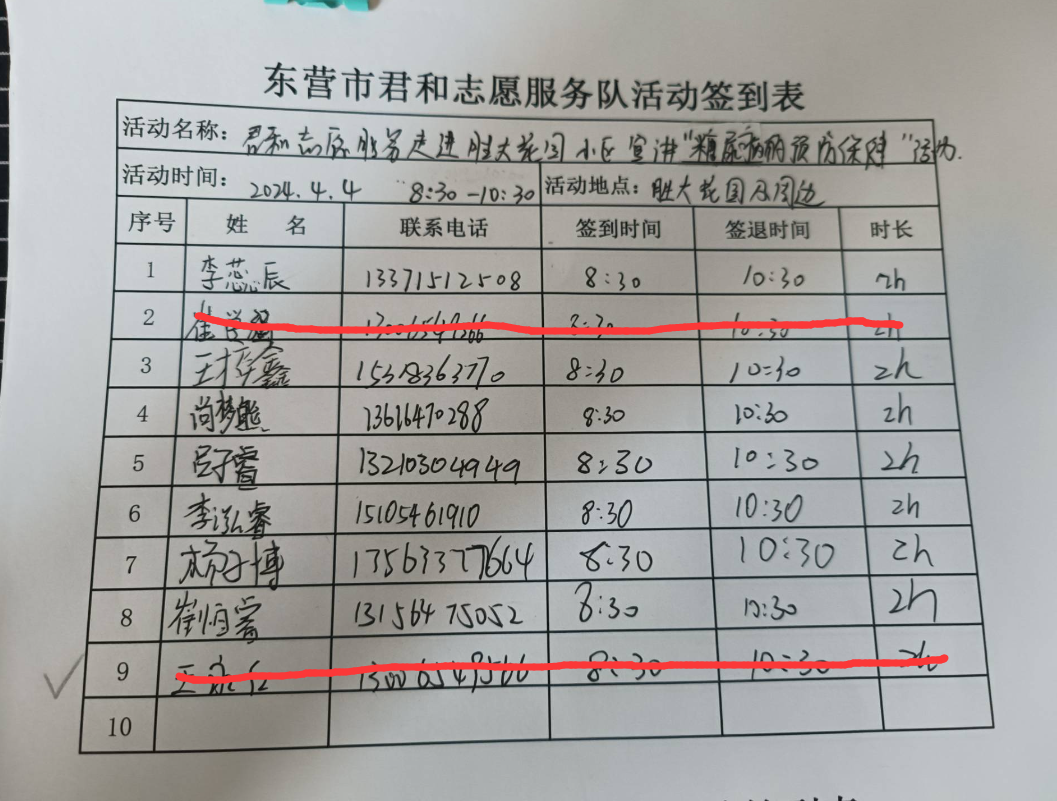 东营市君和志愿服务队活动签到表
活动名称：君和志愿服务走进胜大花园小区宣讲“糖尿病预防保障”活动.
活动时间： 2024.4.4 8:30-10:30 活动地点：胜大花园及周边
序号 姓 名 联系电话 签到时间 签退时间 时长
1 李蕊辰 13371512508 8:30 10:30 2h
2 8:30 10:30 2h
3 王梓鑫 15318363770 8:30 10:30 2h
4 尚梦熊 13616470288 8:30 10:30 2h
5 吕子睿 13210304949 8:30 10:30 2h
6 李泓睿 15105461910 8:30 10:30 2h
7 杨子博 13563377664 8:30 10:30 2h
8 崔恒睿 13156475052 8:30 10:30 2h
9 8:30 10:30 2h
10